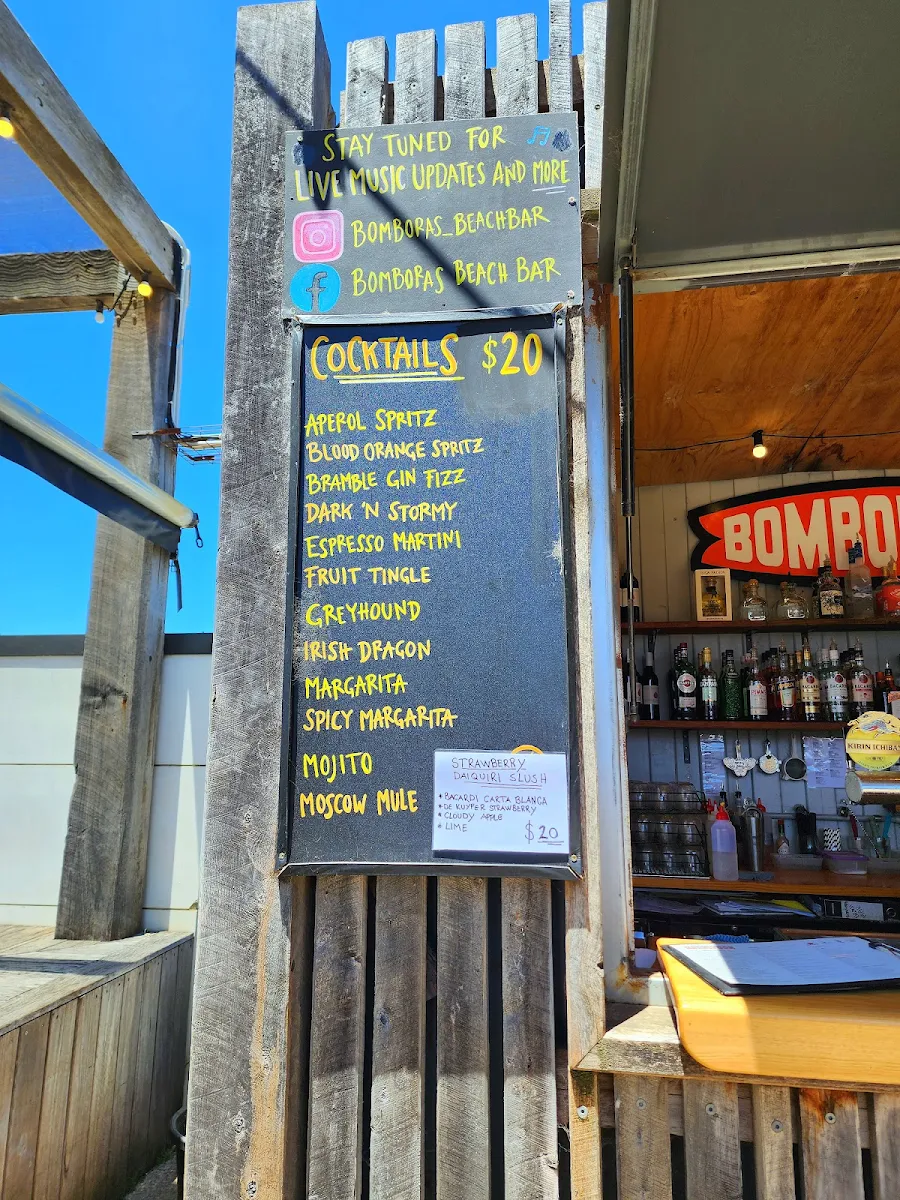 STAY TUNED FOR
LIVE MUSIC UPDATES AND MORE
BOMBORAS_BEACHBAR
f BOMBORAS BEACH BAR
COCKTAILS $20
APEROL SPRITZ
BLOOD ORANGE SPRITZ
BRAMBLE GIN FIZZ
DARK 'N STORMY
ESPRESSO MARTINI
FRUIT TINGLE
GREYHOUND
IRISH DRAGON
MARGARITA
SPICY MARGARITA
MOJITO
MOSCOW MULE
STRAWBERRY
DAIQUIRI SLUSH
* BACARDI CARTA BLANCA
* DE KUYPER STRAWBERRY
* CLOUDY APPLE
* LIME
$20
BOMBO
KIRIN ICHIBA